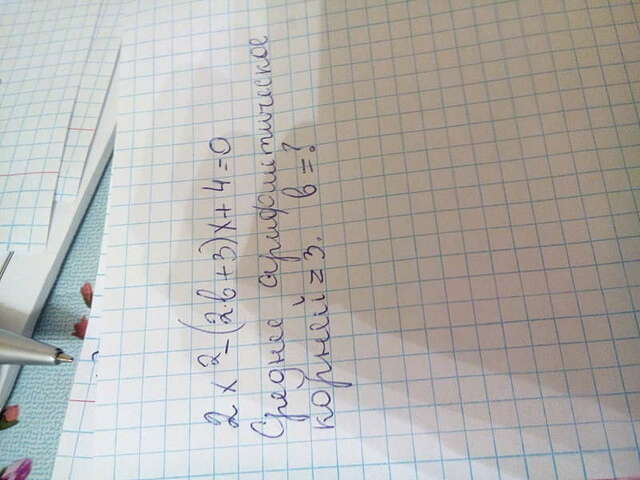 2x²-(2b+3)x+4=0
Среднее арифметическое
корней = 3. b=?